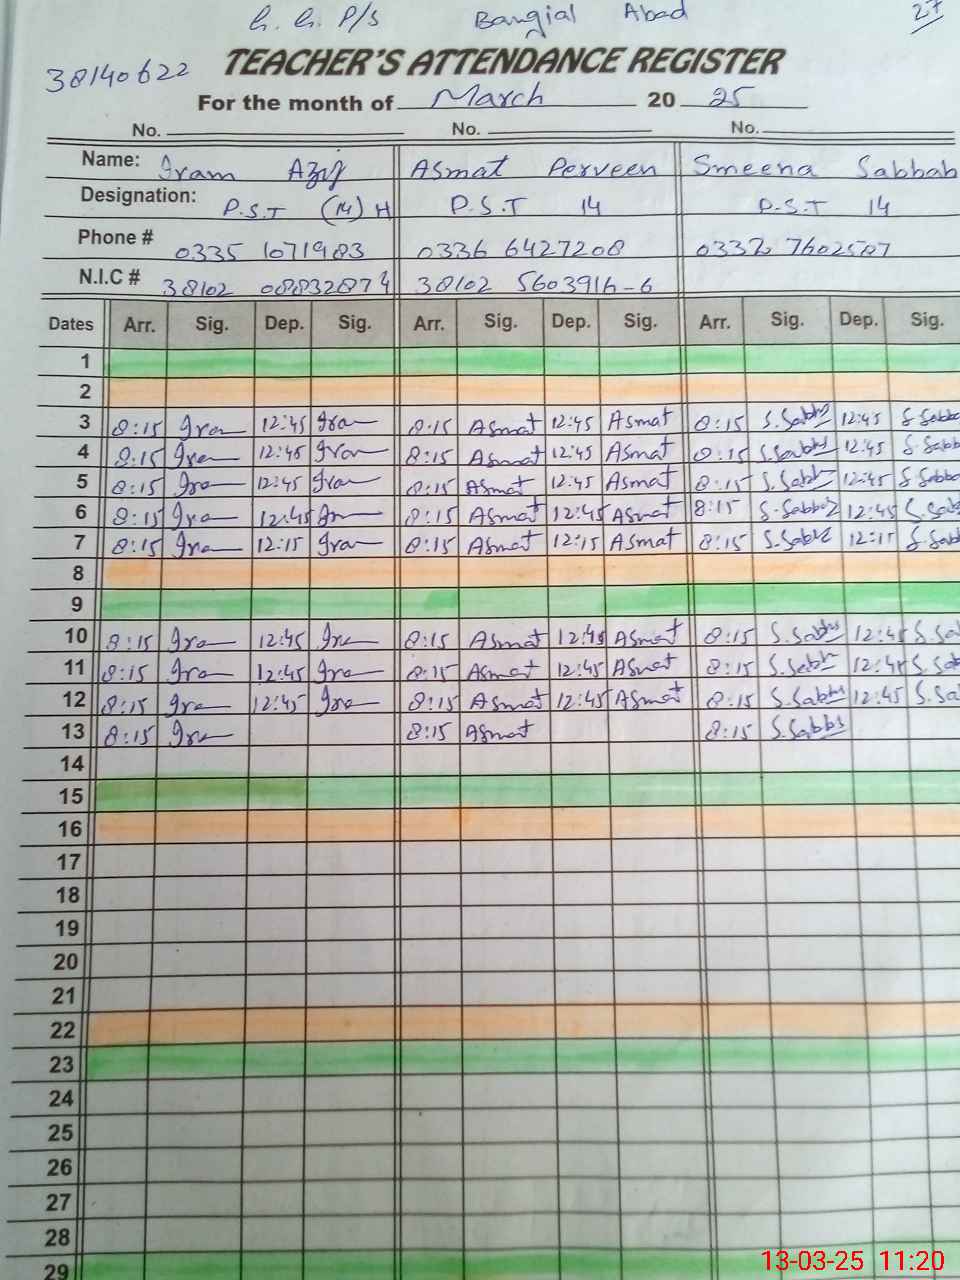 G. G. P/S Bangial Abad 27
38140622 TEACHER'S ATTENDANCE REGISTER
For the month of March 20 25
No. No. No.
Name: Iram Aziz Asmat Perveen Smeena Sabbah
Designation: P.S.T (14) H P.S.T 14 P.S.T 14
Phone # 0335 1071983 0336 6427208
N.I.C # 38102 38102 5603916-6
Dates Arr. Sig. Dep. Sig. Arr. Sig. Dep. Sig. Arr. Sig. Dep. Sig.
1
2
3 8:15 Iram 12:45 Iram 8:15 Asmat 12:45 Asmat 8:15 S.Sabbah 12:45
4 8:15 Iram 12:45 Iram 8:15 Asmat 12:45 Asmat 8:15 S.Sabbah 12:45
5 8:15 Iram 12:45 Iram 8:15 Asmat 12:45 Asmat 8:15 S.Sabbah 12:45
6 8:15 Iram 12:45 Iram 8:15 Asmat 12:45 Asmat 8:15 S.Sabbah 12:45
7 8:15 Iram 12:15 Iram 8:15 Asmat 12:15 Asmat 8:15 S.Sabbah 12:15
8
9
10 8:15 Iram 12:45 Iram 8:15 Asmat 12:45 Asmat 8:15 S.Sabbah 12:45
11 8:15 Iram 12:45 Iram 8:15 Asmat 12:45 Asmat 8:15 S.Sabbah 12:45
12 8:15 Iram 12:45 Iram 8:15 Asmat 12:45 Asmat 8:15 S.Sabbah 12:45
13 8:15 Iram 8:15 Asmat 8:15 S.Sabbah
14
15
16
17
18
19
20
21
22
23
24
25
26
27
28
29
13-03-25 11:20